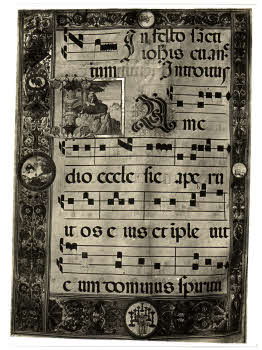 In festo sacti
iohis euan
Introitus
N me
dio eccle sie ape ru
it os e ius et iple uit
e um dominus spiritu